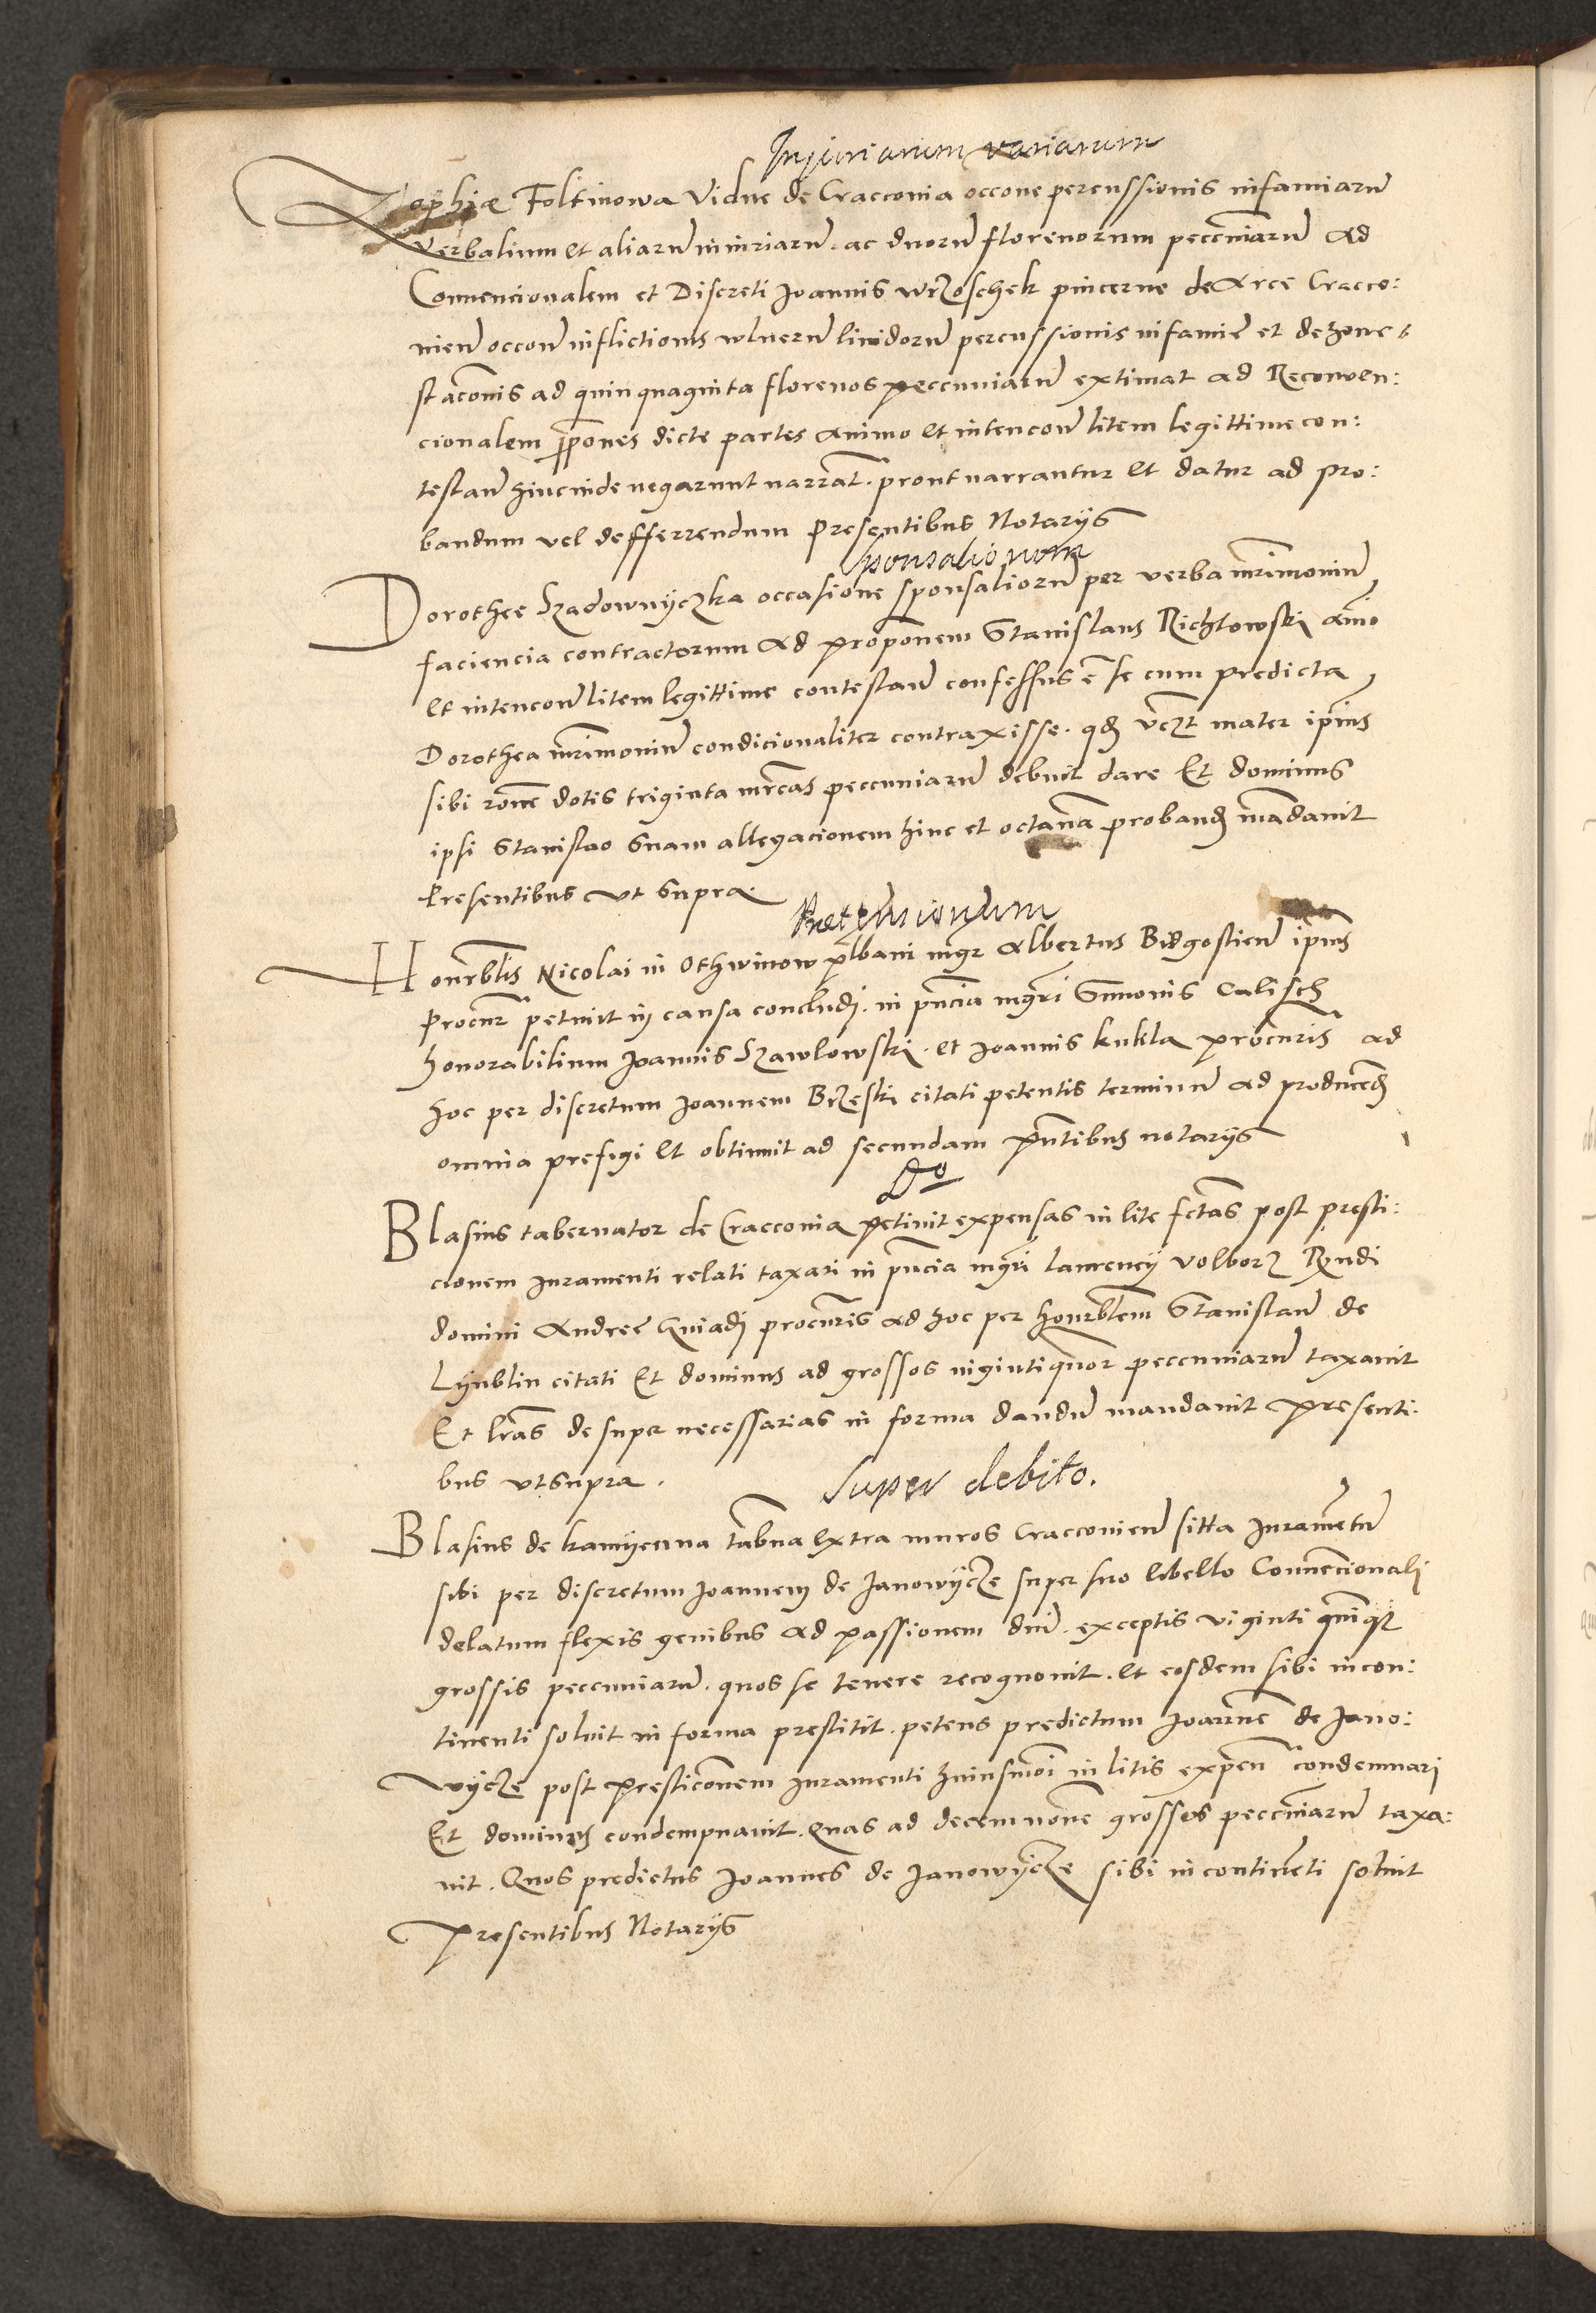 Injuriarum variarum
Zophiæ Foltinowa Vidue de Cracconia occone percussionis infamiarū
verbalium et aliarū iniuriarū . ac duorū florenorum peccuniarū ad
Conuencionalem et Discreti Joannis wrzoschek pincerne de Arce Cracco:
nień occoń inflictionis wlnerū liuidorū percussionis infamie et dehone
stacōnis ad quinquaginta florenos peccuniarū extimat ad Reconuen:
cionalem ꝓpones dicte partes animo et intencoń litem legittime con:
testań hincinde negarunt narrat . prout narrantur et datur ad pro:
bandum vel defferrendum presentibus Notarijs
Sponsaliorum
Dorothee Szadownyczka occasione sponsaliorū per verba mr̄imoniū
faciencia contractorum ad proponem Stanislaus Richlowski aīo
et intencoń litem legittime contestań confessus ē se cum predicta
Dorothea mr̄imoniū condicionaliter contraxisse . qd vczt mater ipius
sibi rone dotis triginta mrcas peccuniarū debuit dare Et dominus
ipsi Stanislao suam allegacionem hinc et octauā proband mādauit
presentibus vt supra
Honrblis Nicolai in Othwinow plbani mgr Albertus Bidgostień ipius
procur petiuit in causa concludi . in pn̄cia mgri Simonis Calisch
honorabilium Joannis Szawlowski . et Joannis kukla procuris ad
hoc per discretum Joannem Brzeski citati petentis terminū ad producend
omnia prefigi et obtinuit ad secundam pn̄tibus notarijs
Do
Blasius tabernator de Cracconia petiuit expensas in lite fctas post presti:
cionem iuramenti relati taxari in pn̄cia mgri laurencij volborz Rndi
domini Andree procuris ad hoc per honrblem Stanislaū de
Lyublin citati Et dominus ad grossos uigintiquor peccuniarū taxauit
Et lras desuper necessarias in forma dandū mandauit presenti:
bus vt supra .
Super debito.
Blasius de kamyenna tabna extra muros Cracconień sitta Iuramentū
sibi per discretum Joannem de Janowycze super suo libello Conuencionali
delatum flexis genibus ad passionem dni . exceptis viginti quinque
grossis peccuniarū . quos se tenere recognouit . et eosdem sibi incon:
tinenti soluit in forma prestitit . petens predictum Joannē de Jano:
wycze post presticonem iuramenti huiusmoi in litis expeń condemnari
Et dominus condempnauit . quas ad decemnoue grossos peccuniarū taxa:
uit . Quos predictus Joannes de Janowycze sibi incontineti soluit
presentibus Notarijs